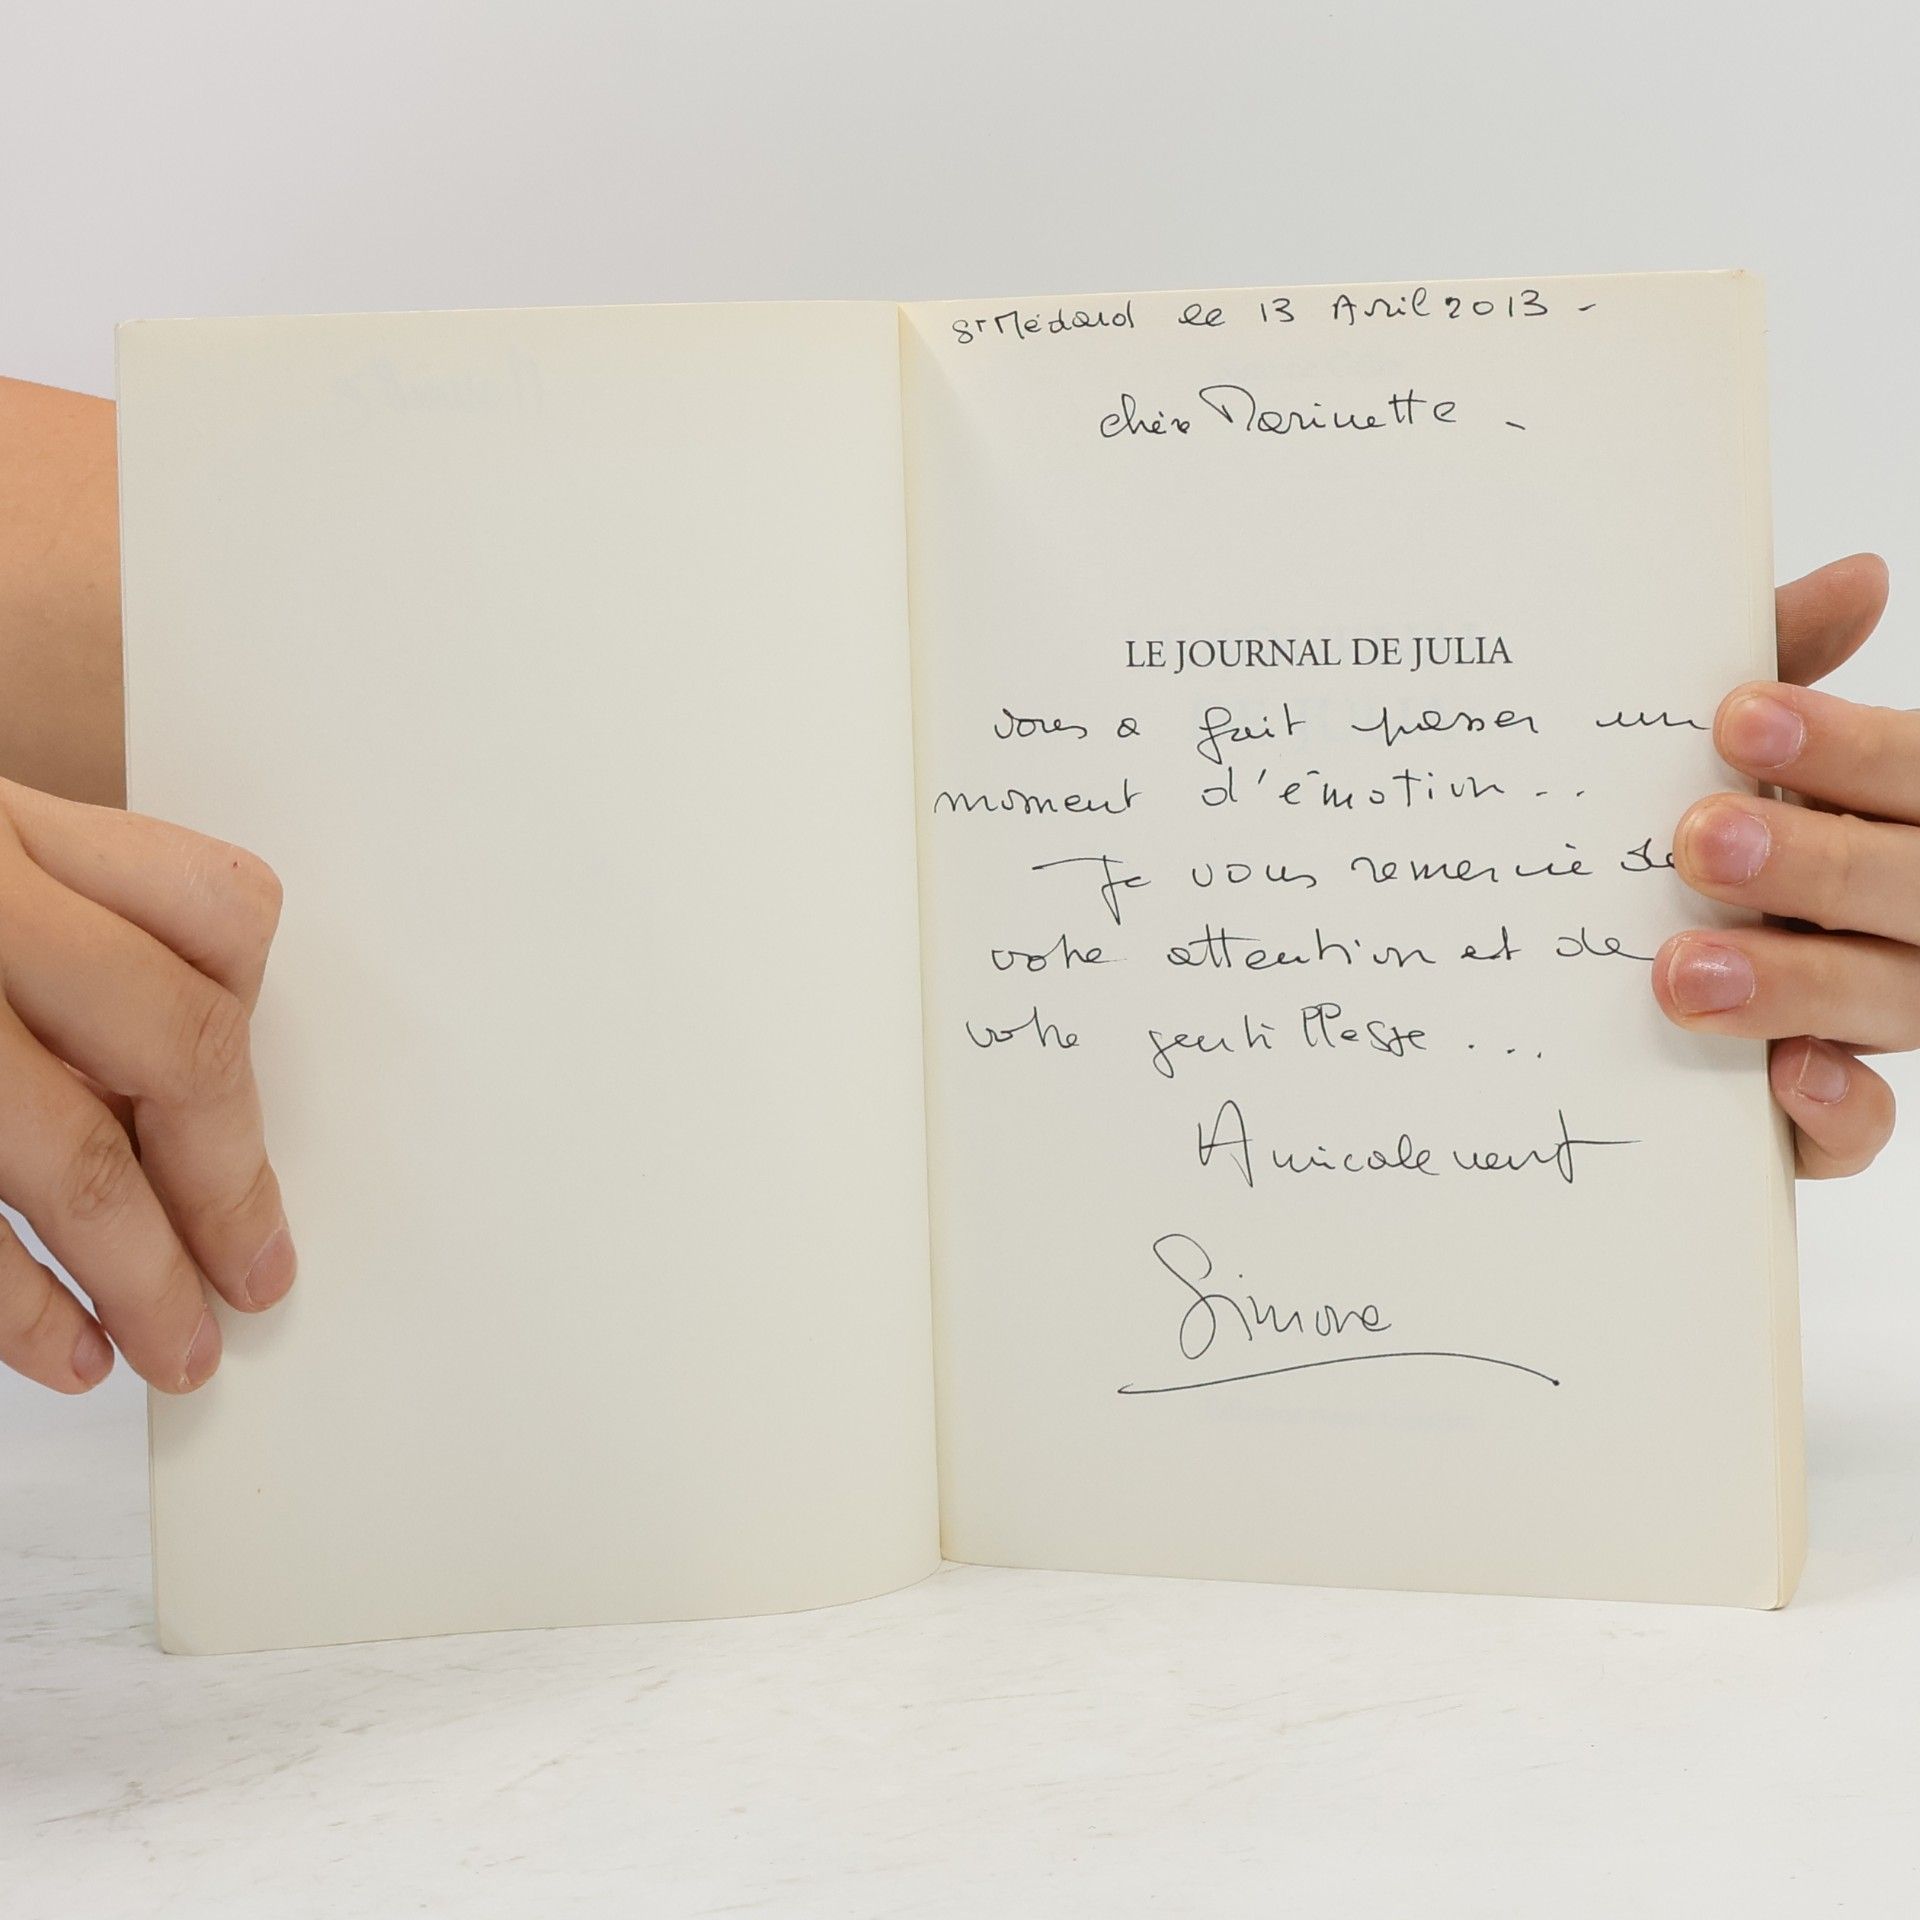 St Médard le 13 Avril 2013 -
chère Marinette -
LE JOURNAL DE JULIA
vous a fait passer un
moment d'émotion...
Je vous remercie de
votre attention et de
votre gentillesse...
Amicalement
Simone